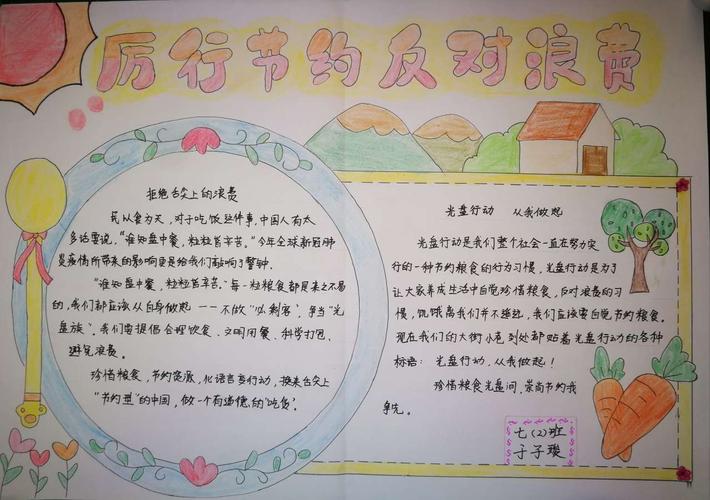 厉行节约反对浪费
拒绝舌尖上的浪费
民以食为天，对于吃饭这件事，中国人有太
多话要说，“谁知盘中餐，粒粒皆辛苦。”今年全球新冠肺
炎疫情所带来的影响更是给我们敲响了警钟。
“谁知盘中餐，粒粒皆辛苦。”每一粒粮食都是来之不易
的，我们都应该从自身做起——不做“必剩客”，争当“光
盘族”。我们要提倡合理饮食、文明用餐、科学打包、
避免浪费。
珍惜粮食，节约资源，化语言为行动，换来舌尖上
“节约型”的中国，做一个有道德的“吃货”。
光盘行动 从我做起
光盘行动是我们整个社会一直在努力实
行的一种节约粮食的行为习惯，光盘行动是为了
让大家养成生活中自觉珍惜粮食，反对浪费的习
惯，饥饿离我们并不遥远，我们应该要自觉节约粮食。
现在我们的大街小巷到处都贴着光盘行动的各种
标语：光盘行动，从我做起！
珍惜粮食光盘问，崇尚节约我
争先。
七（2）班
于子璇